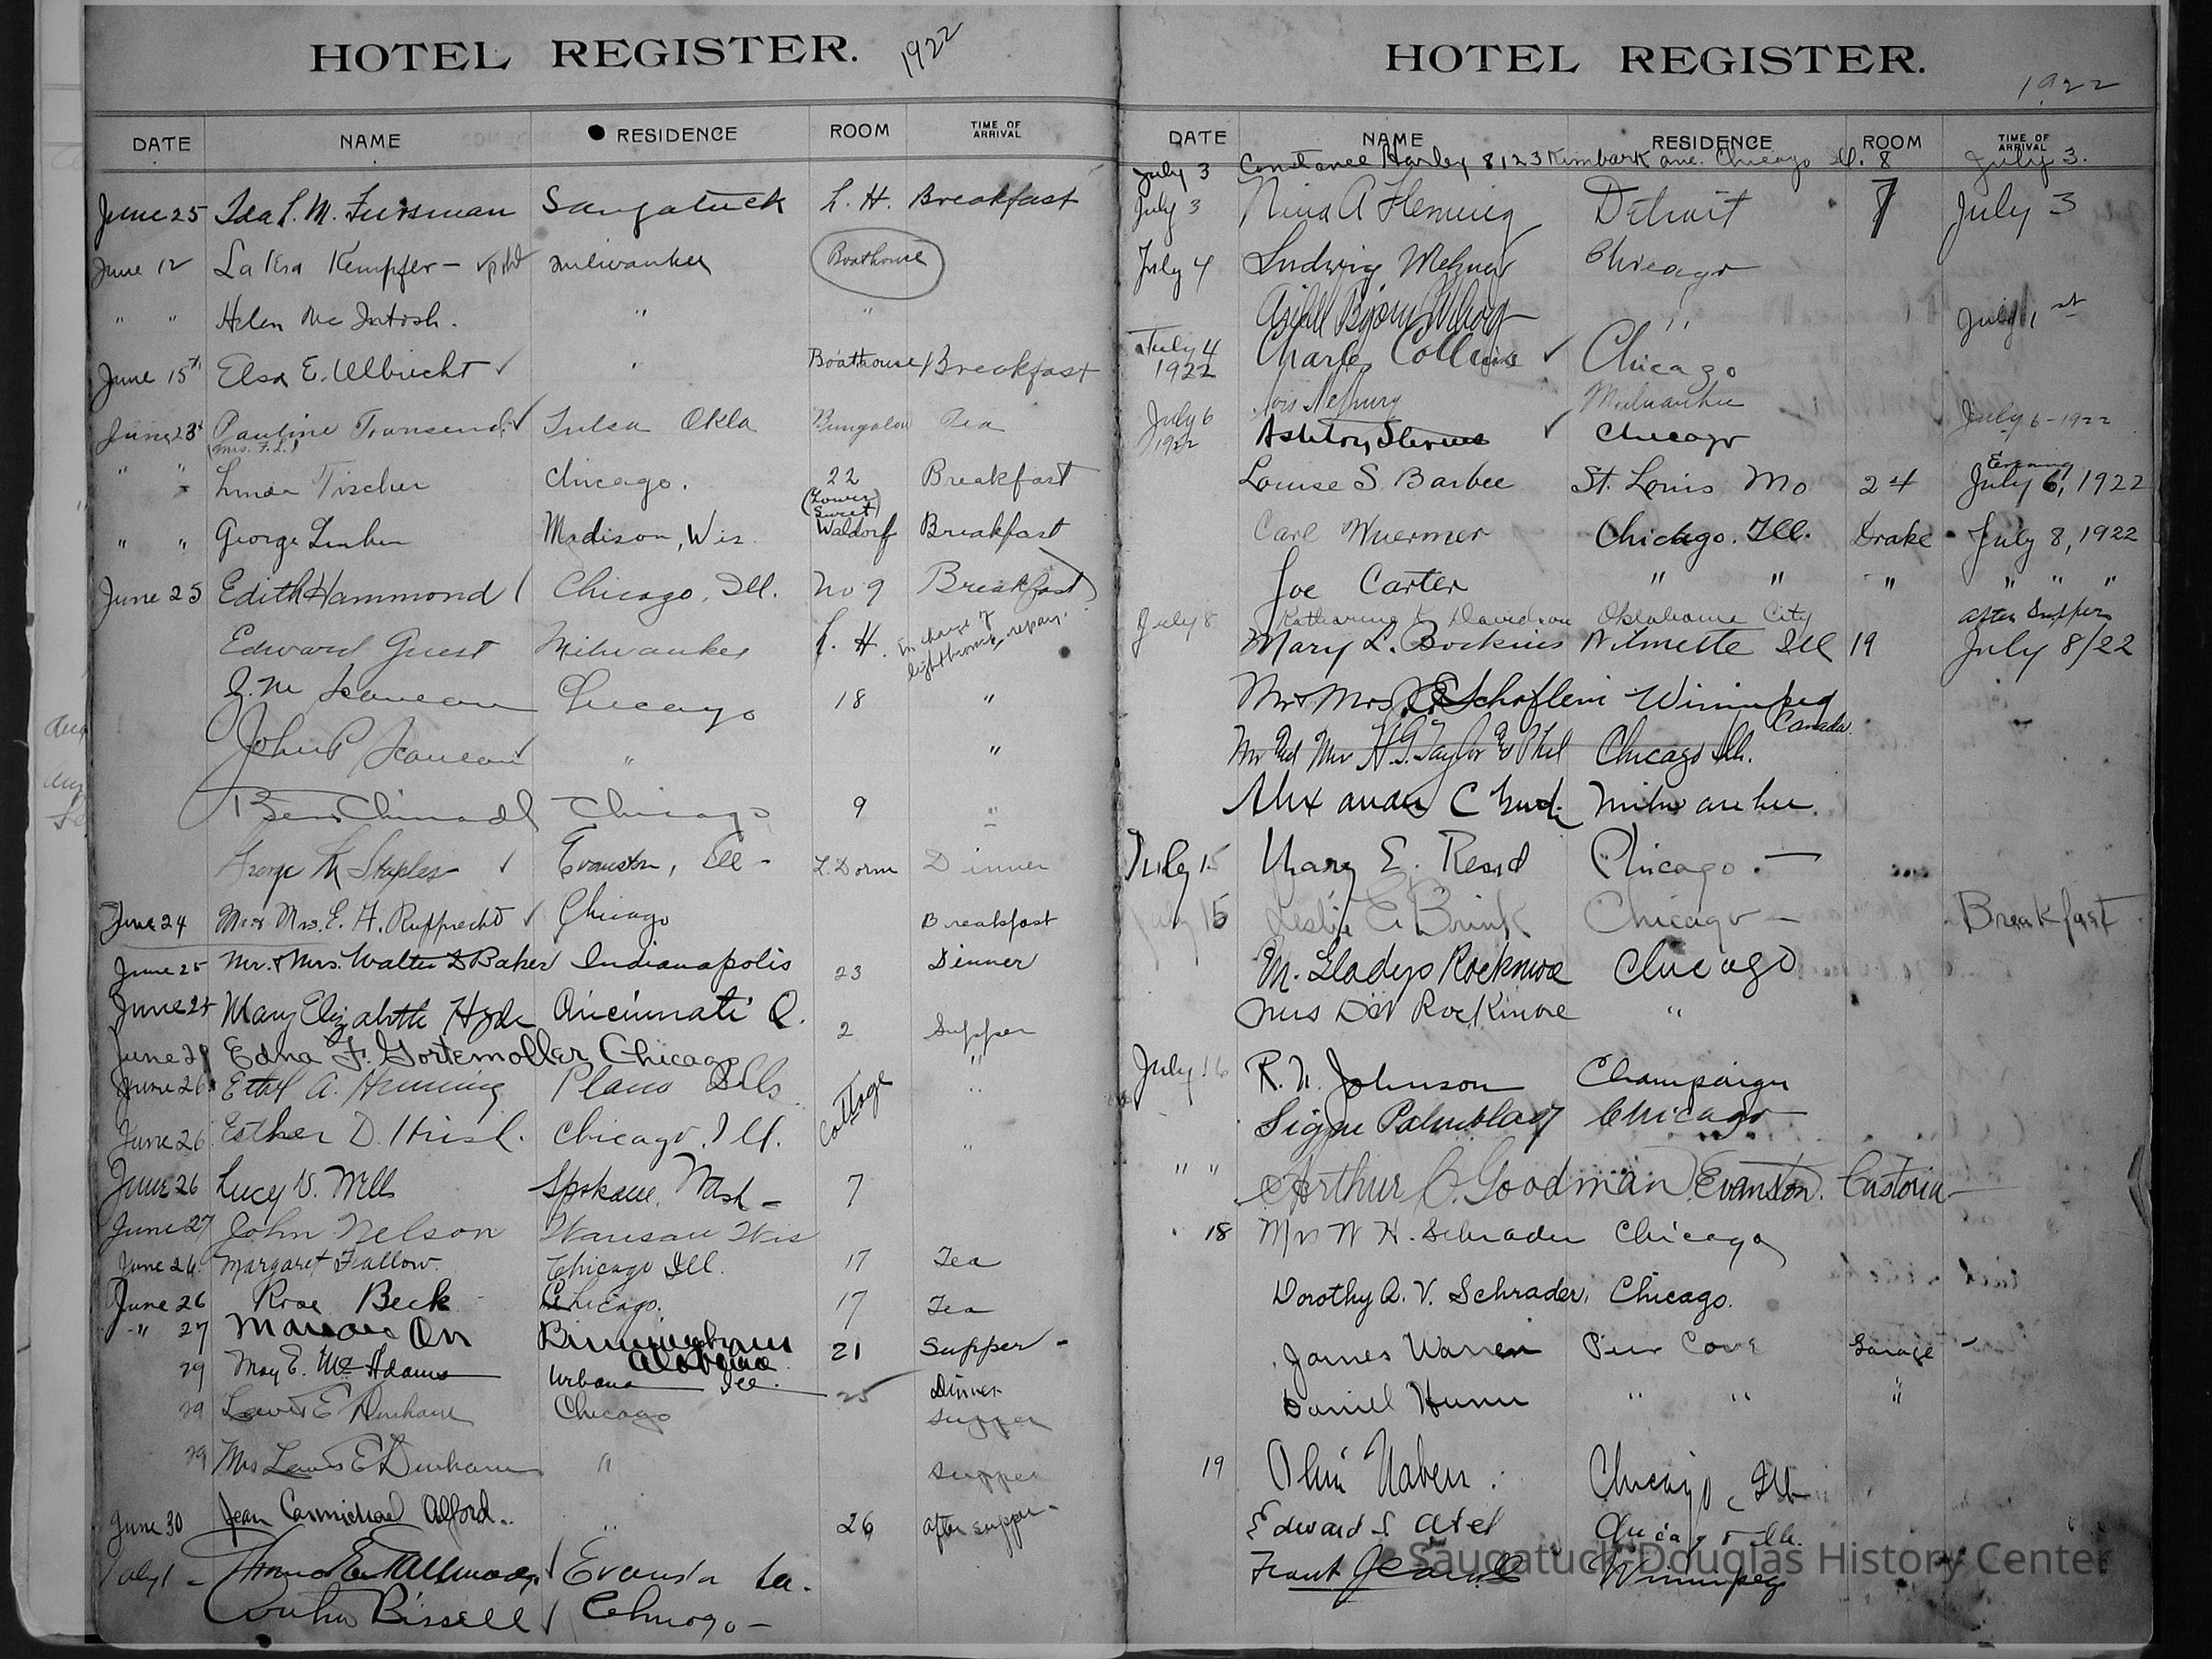 HOTEL REGISTER. 1922
DATE NAME RESIDENCE ROOM TIME OF ARRIVAL
June 25 Ida L. M. Fursman Saugatuck L. H. Breakfast
June 12 Kempfer - Milwaukee Boathouse
" " Helen McIntosh. " "
June 15th Elsa E. Ulbricht ✓ " Boathouse Breakfast
June 23 Pauline Townsend ✓ Tulsa Okla Bungalow Tea
(Mrs. F. L.)
" " Linda Tischer Chicago. 22 Breakfast
(Tower Sweet)
" " George Madison, Wis. Waldorf Breakfast
June 25 Edith Hammond Chicago, Ill. No 9 Breakfast
Edward Guest Milwaukee L. H. In charge of repairs.
Chicago 18 "
John P ✓ " "
Ben Chicago 9 "
George Staples ✓ Evanston, Ill - L. Dorm Dinner
June 24 Mr & Mrs. E. H. Rupprecht ✓ Chicago Breakfast
June 25 Mr. & Mrs. Walter D Baker Indianapolis 23 Dinner
June 25 Mary Elizabeth Hyde Cincinnati O. 2 Supper
June 29 Edna F. Gortemoller Chicago "
June 26 Ethel A. Henning Plano Ills Cottage "
June 26 Esther D. Chicago, Ill. "
June 26 Lucy V. Wells Spokane, Wash - 7
June 27 John Nelson Wausau Wis
June 26 Margaret Fallow. Chicago Ill. 17 Tea
June 26 Rose Beck Chicago. 17 Tea
" 27 Orr Birmingham Alabama 21 Supper -
29 May E. McAdams Urbana Ill. 25 Dinner
29 Lewis E Durham Chicago supper
29 Mrs Lewis E Durham " supper
June 30 Jean Carmichael Alford. " 26 after supper -
July 1 - ✓ Evanston
Bissell ✓ Chicago -
HOTEL REGISTER.
1922
DATE NAME RESIDENCE ROOM TIME OF ARRIVAL
July 3 Constance Harley 8123 Kimbark ave. Chicago Ill. 8 July 3.
July 3 Nina A Heming Detroit 7 July 3
July 4 Ludwig Chicago
" July 1st
July 4 1922 Charles Collins ✓ Chicago
July 6 1922 Milwaukee July 6 - 1922
Ashton Stevens ✓ Chicago
Louise S. Barbee St. Louis Mo 24 Evening July 6, 1922
Carl Wuermer Chicago. Ill. Drake July 8, 1922
Joe Carter " " " " " "
July 8 Katharine Davidson Oklahoma City After Supper
Mary L. Bockius Wilmette Ill 19 July 8/22
Mr & Mrs Winnipeg Canada
Mr and Mrs H. G. Taylor & Phil Chicago Ill.
Alexander C Milwaukee.
July 15 Mary E. Chicago. -
July 15 Leslie Brink Chicago - Breakfast
M. Gladys Rockmore Chicago
Mrs Rockmore "
July 16 R. N. Johnson Champaign
Signe Palmblad Chicago
" " Arthur Goodman, Evanston. Castoria -
18 Mrs W H. Schrader Chicago
Dorothy A. V. Schrader, Chicago.
James Warren Pier Cove Garage -
Daniel " " "
19 Chicago, Ill
Edward Chicago Ill.
Frank Winnipeg
Saugatuck-Douglas History Center